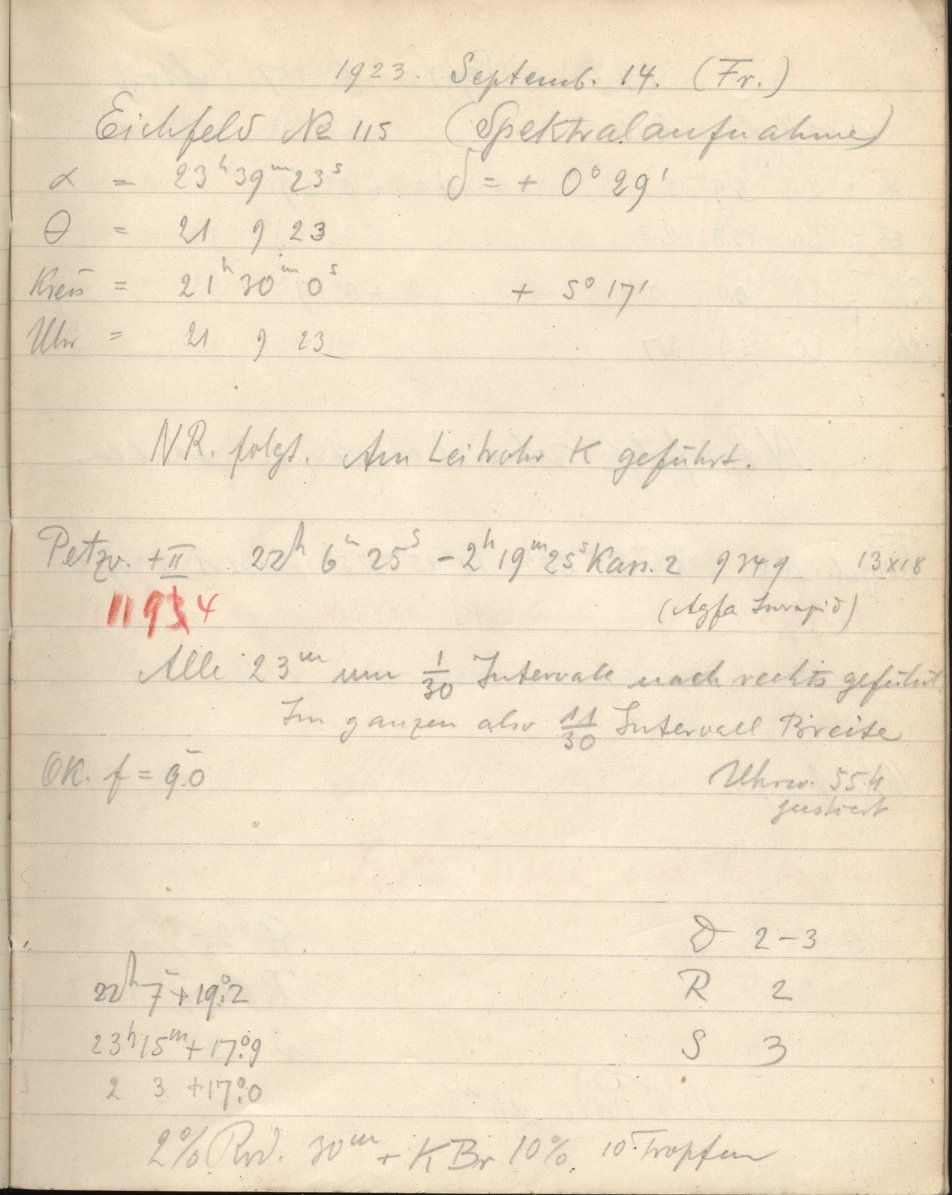 1923. Septemb. 14. (Fr.)
Eichfeld № 115 (Spektralaufnahme)
α = 23ʰ 39ᵐ 23ˢ δ = + 0° 29'
θ = 21 9 23
Kreis = 21ʰ 30ᵐ 0ˢ + 5° 17'
Uhr = 21 9 23
NR. folgt. Am Leitrohr K geführt.
Petzv. + II 22ʰ 6ᵐ 25ˢ – 2ʰ 19ᵐ 25ˢ Kass. 2 9349 13x18
1195 4 (Agfa Inrapid)
Alle 23ᵐ um 1/30 Intervale nach rechts geführt
Im ganzen also 11/30 Intervall Breite
OK. f = 9.0 Uhrw. 554
justiert
D 2-3
22ʰ 7ᵐ + 19°.2 R 2
23ʰ 15ᵐ + 17°.9 S 3
2 3 + 17°.0
2% Rod. 30ᵐ + KBr 10% 10 Tropfen